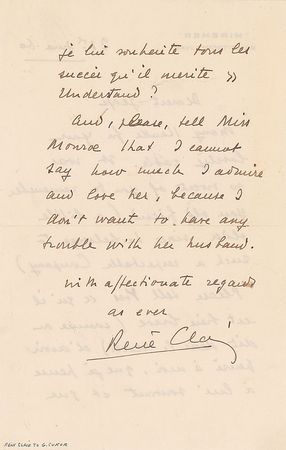 je lui souhaite tous les
succès qu'il mérite »
Understand?
And, please, tell Miss
Monroe that I cannot
say how much I admire
and love her, because I
don't want to have any
trouble with her husband.
with affectionate regards
as ever
René Clair
RENE CLAIR TO G. CUKOR